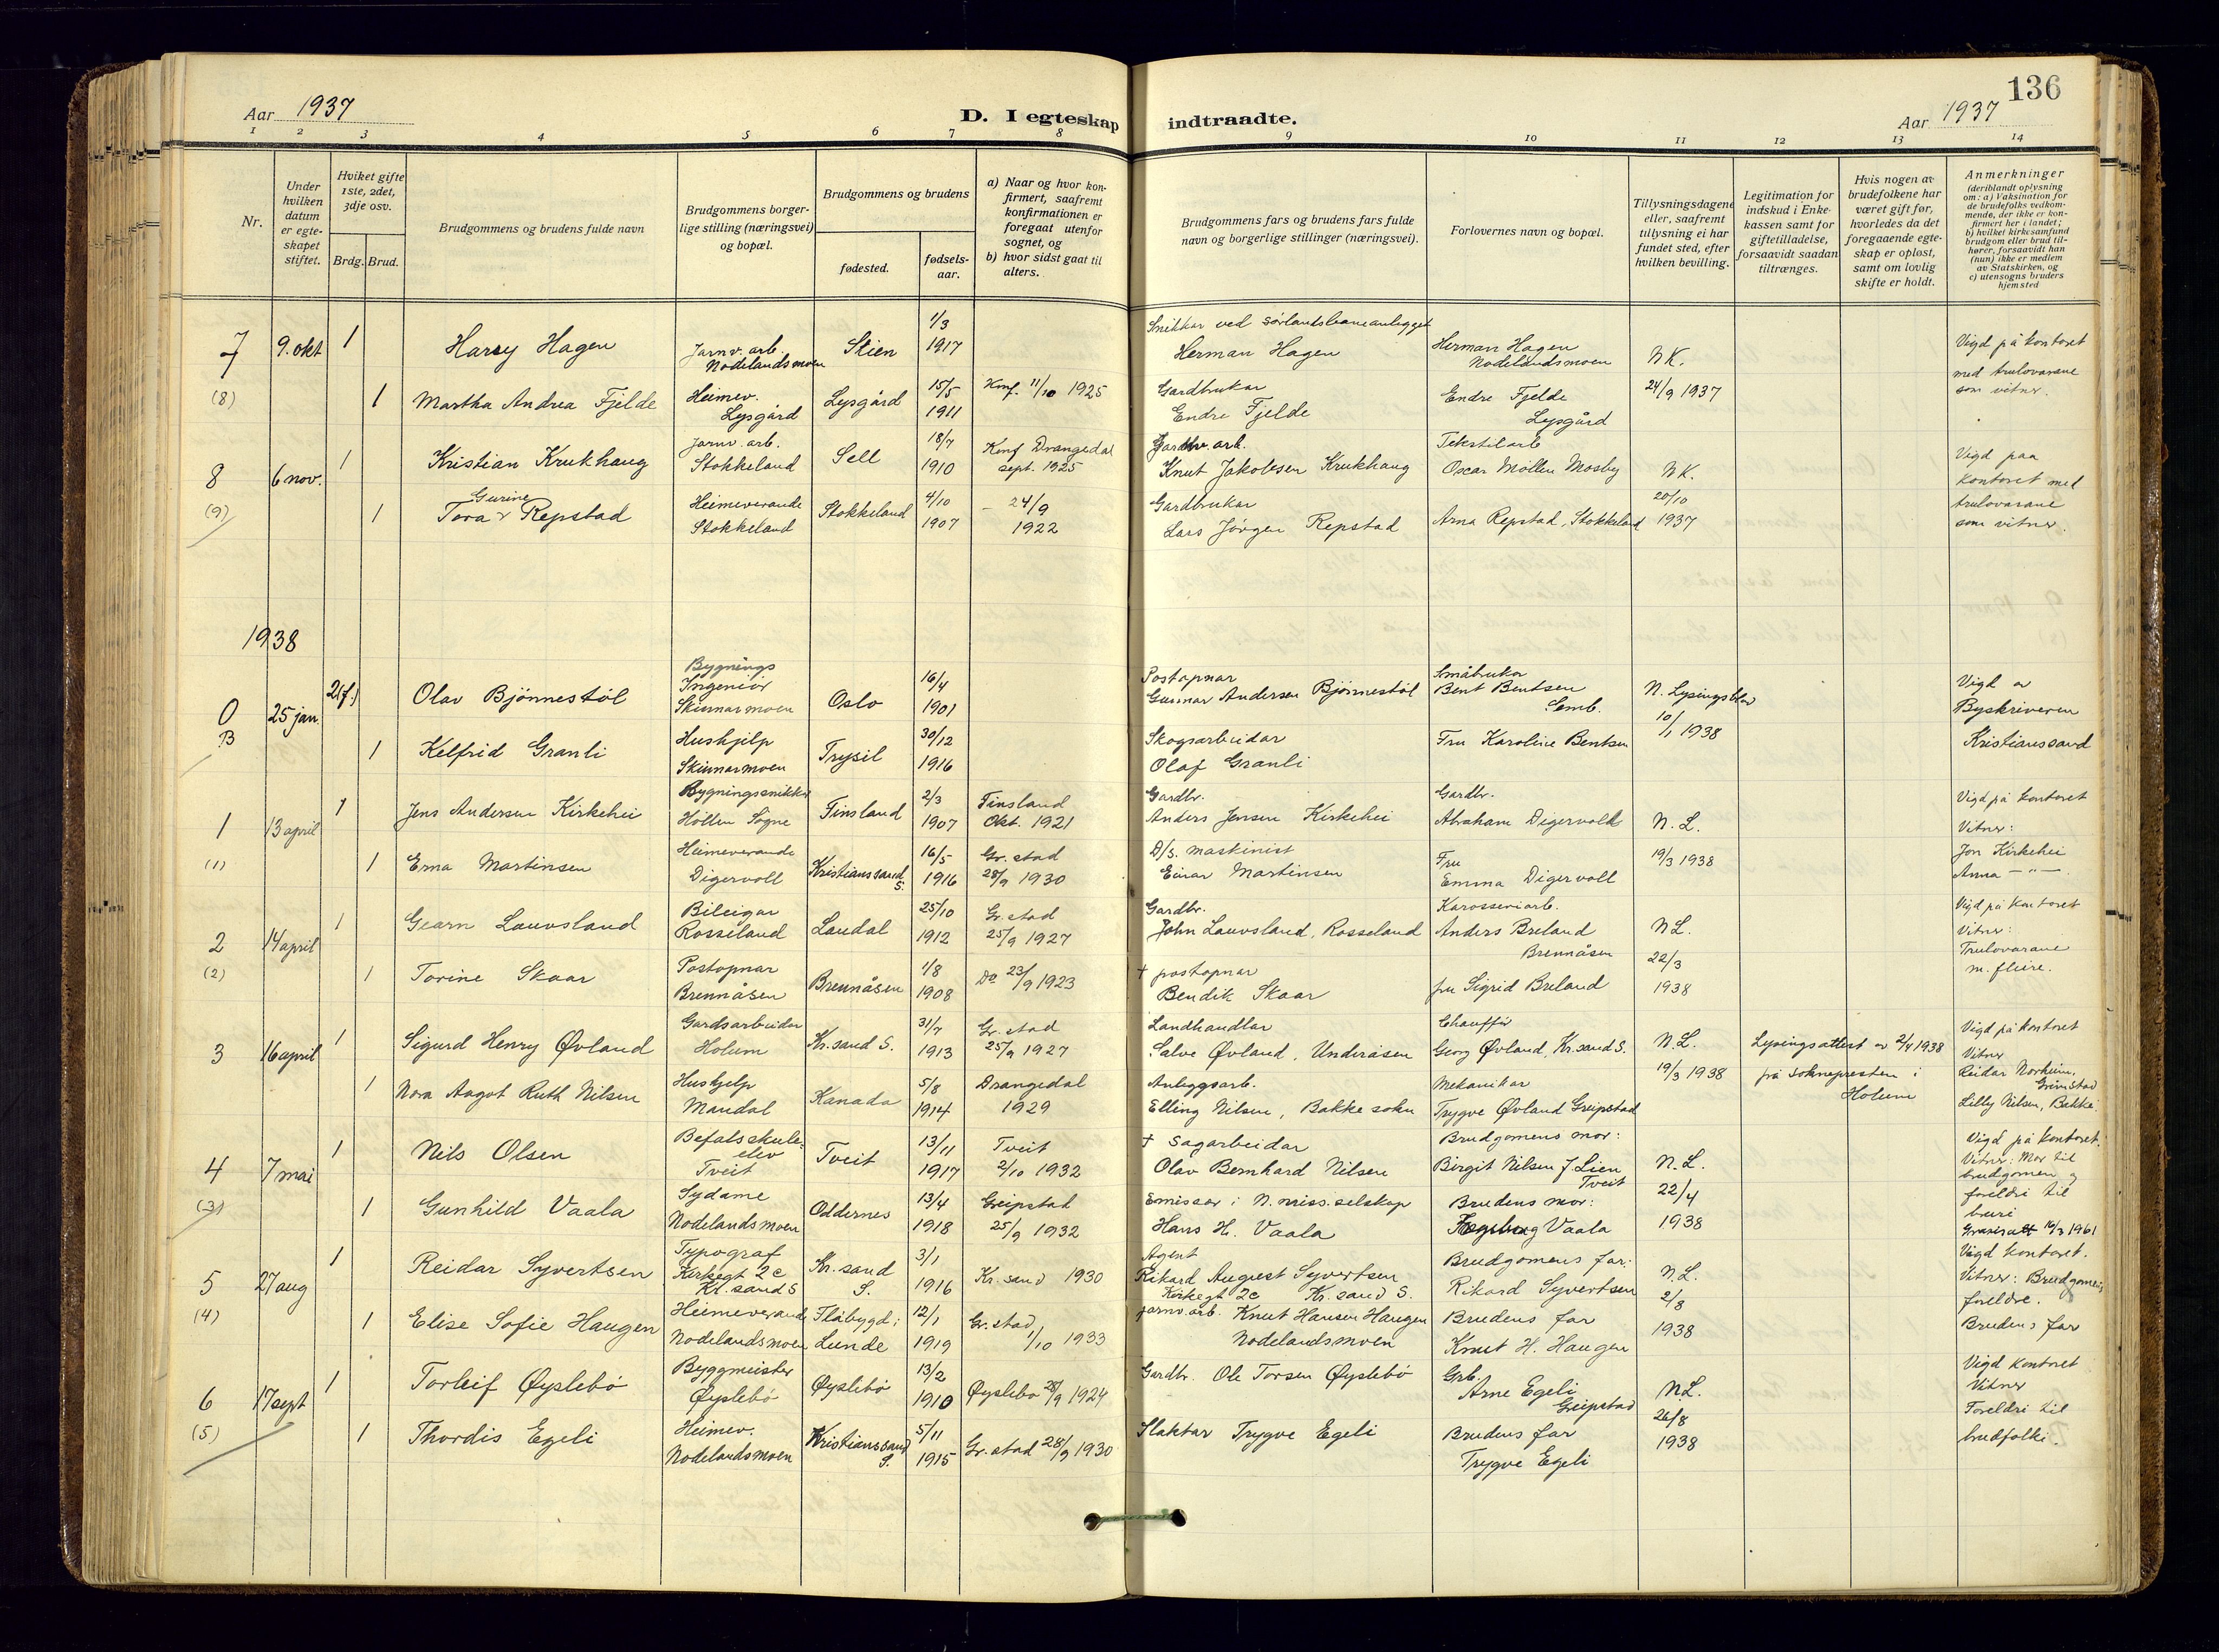 136
Aar 1937
D. I egteskap indtraadte.
Aar 1937
1 2 3 4 5 6 7 8 9 10 11 12 13 14
Nr.
Under hvilken datum er egteskapet stiftet.
Hviket gifte 1ste, 2det, 3dje osv.
Brdg. Brud.
Brudgommens og brudens fulde navn
Brudgommens borgerlige stilling (næringsvei) og bopæl.
Brudgommens og brudens
fødested.
fødselsaar.
a) Naar og hvor konfirmert, saafremt konfirmationen er foregaat utenfor sognet, og
b) hvor sidst gaat til alters.
Brudgommens fars og brudens fars fulde navn og borgerlige stillinger (næringsvei).
Forlovernes navn og bopæl.
Tillysningsdagene eller, saafremt tillysning ei har fundet sted, efter hvilken bevilling.
Legitimation for indskud i Enkekassen samt for giftetilladelse, forsaavidt saadan tiltrænges.
Hvis nogen av brudefolkene har været gift før, hvorledes da det foregaaende egteskap er opløst, samt om lovlig skifte er holdt.
Anmerkninger
(deriblandt oplysning om: a) Vaksination for de brudefolks vedkommende, der ikke er konfirmert her i landet;
b) hvilket kirkesamfund brudgom eller brud tilhører, forsaavidt han (hun) ikke er medlem av Statskirken, og
c) utensogns bruders hjemsted
7 9. okt 1 Harry Hagen Jarnv. arb. Nodelandsmoen Skien 1/3 1917
Snikkar ved Sørlandsbaneanlegget Herman Hagen
Herman Hagen Nodelandsmoen N K.
Vigd på kontoret med trulovarane som vitner.
(8) 1 Martha Andrea Fjelde Heimev. Lysgård Lysgård 15/5 1911 Konf. 11/10 1925
Gardbrukar Endre Fjelde
Endre Fjelde Lysgård 24/9 1937
8 6 nov. 1 Kristian Krukhaug Jarnv. arb. Stokkeland Sell 18/7 1910 Konf Drangedal sept. 1925
Jarnv. arb. Knut Jakobsen Krukhaug
Tekstilarb Oscar Mollen Mosby N K.
Vigd paa kontoret med trulovarane som vitner.
(9) 1 Tora Gurine Repstad Heimeverande Stokkeland Stokkeland 4/10 1907 - 24/9 1922
Gardbrukar Lars Jörgen Repstad
Arna Repstad, Stokkeland 20/10 1937
1938
0 B 25 jan. 2(f.) Olav Bjönnestöl Bygnings Ingeniör Skinnarmoen Oslo 16/4 1901
Postopnar Gunnar Andersen Bjönnestöl
Småbrukar Bent Bentsen Semb. N. Lysingsblad 10/1 1938
Vigd av Byskriveren Kristianssand
1 Kelfrid Granli Hushjelp Skinnarmoen Trysil 30/12 1916
Skogsarbeidar Olaf Granli
Fru Karoline Bentsen
1 13 april 1 Jens Andersen Kirkehei Bygningssnikkar Höllen Sogne Finsland 2/3 1907 Finsland Okt. 1921
Gardbr. Anders Jensen Kirkehei
Gardbr. Abraham Digervold N. L.
Vigd på kontoret Vitner: Jon Kirkehei Anna — " —
(1) 1 Erna Martinsen Heimeverande Digervoll Kristianssand S. 16/5 1916 Gr. stad 28/9 1930
D/S. maskinist Einar Martinsen
Fru Emma Digervoll 19/3 1938
2 14 april 1 Gearn Lauvsland Bileigar Rosseland Laudal 25/10 1912 Gr. stad 25/9 1927
Gardbr. John Lauvsland, Rosseland
Karosseriarb. Anders Breland Brennåsen N L.
Vigd på kontoret Vitner: Trulovarane m. fleire.
(2) 1 Torine Skaar Postopnar Brennåsen Brennåsen 1/8 1908 Do 23/9 1923
† postopnar Bendik Skaar
fru Sigrid Breland 22/3 1938
3 16 april 1 Sigurd Henry Øvland Gardsarbeidar Holum Kr. sand S. 31/7 1913 Gr. stad 25/9 1927
Landhandlar Salve Øvland, Underåsen
Chauffør Georg Øvland, Kr. sand S. N. L.
Lysingsattest av 2/4 1938 frå soknepresten i Holum
Vigd på kontoret Vitner Reidar Norheim, Grimstad Lilly Nilsen, Bakke
1 Nora Aagot Ruth Nilsen Hushjelp Mandal Kanada 5/8 1914 Drangedal 1929
Anleggsarb. Elling Nilsen, Bakke sokn
Mekanikar Trygve Øvland Greipstad 19/3 1938
4 7 mai 1 Nils Olsen Befalsskule-elev Tveit Tveit 13/11 1917 Tveit 2/10 1932
† Sagarbeidar Olav Bernhard Nilsen
Brudgomens mor: Birgit Nilsen f Lien Tveit N. L.
Vigd på kontoret. Vitner: Mor til brudgomen og foreldri til bruri
(3) 1 Gunhild Vaala Sydame Nodelandsmoen Oddernes 13/4 1918 Greipstad 25/9 1932
Emissær i N. miss. selskap Hans H. Vaala
Brudens mor: Vaala 22/4 1938
16/3 1961
5 27 aug 1 Reidar Syvertsen Typograf Kirkegt 2c Kr. sand S Kr. sand S. 3/1 1916 Kr. sand 1930
Agent Rikard August Syvertsen Kirkegt 2c Kr. sand S.
Brudgomens far: Rikard Syvertsen N. L.
Vigd kontoret. Vitner: Brudgomens foreldre. Brudens far
(4) 1 Elise Sofie Haugen Heimeverande Nodelandsmoen Flåbygd i Lunde 12/1 1919 Gr. stad 1/10 1933
Jarnv. arb. Knut Hansen Haugen Nodelandsmoen
Brudens far Knut H. Haugen 2/8 1938
6 17 sept 1 Torleif Øyslebö Byggmeister Øyslebö Øyslebö 13/2 1910 Øyslebö 28/9 1924
Gardbr. Ole Torsen Øyslebö
Grb. Arne Egeli Greipstad N L.
Vigd kontoret Vitner Foreldri til brudfolki.
(5) 1 Thordis Egeli Heimev. Nodelandsmoen Kristianssand S. 5/11 1915 Gr. stad 28/9 1930
Slaktar Trygve Egeli
Brudens far Trygve Egeli 26/8 1938